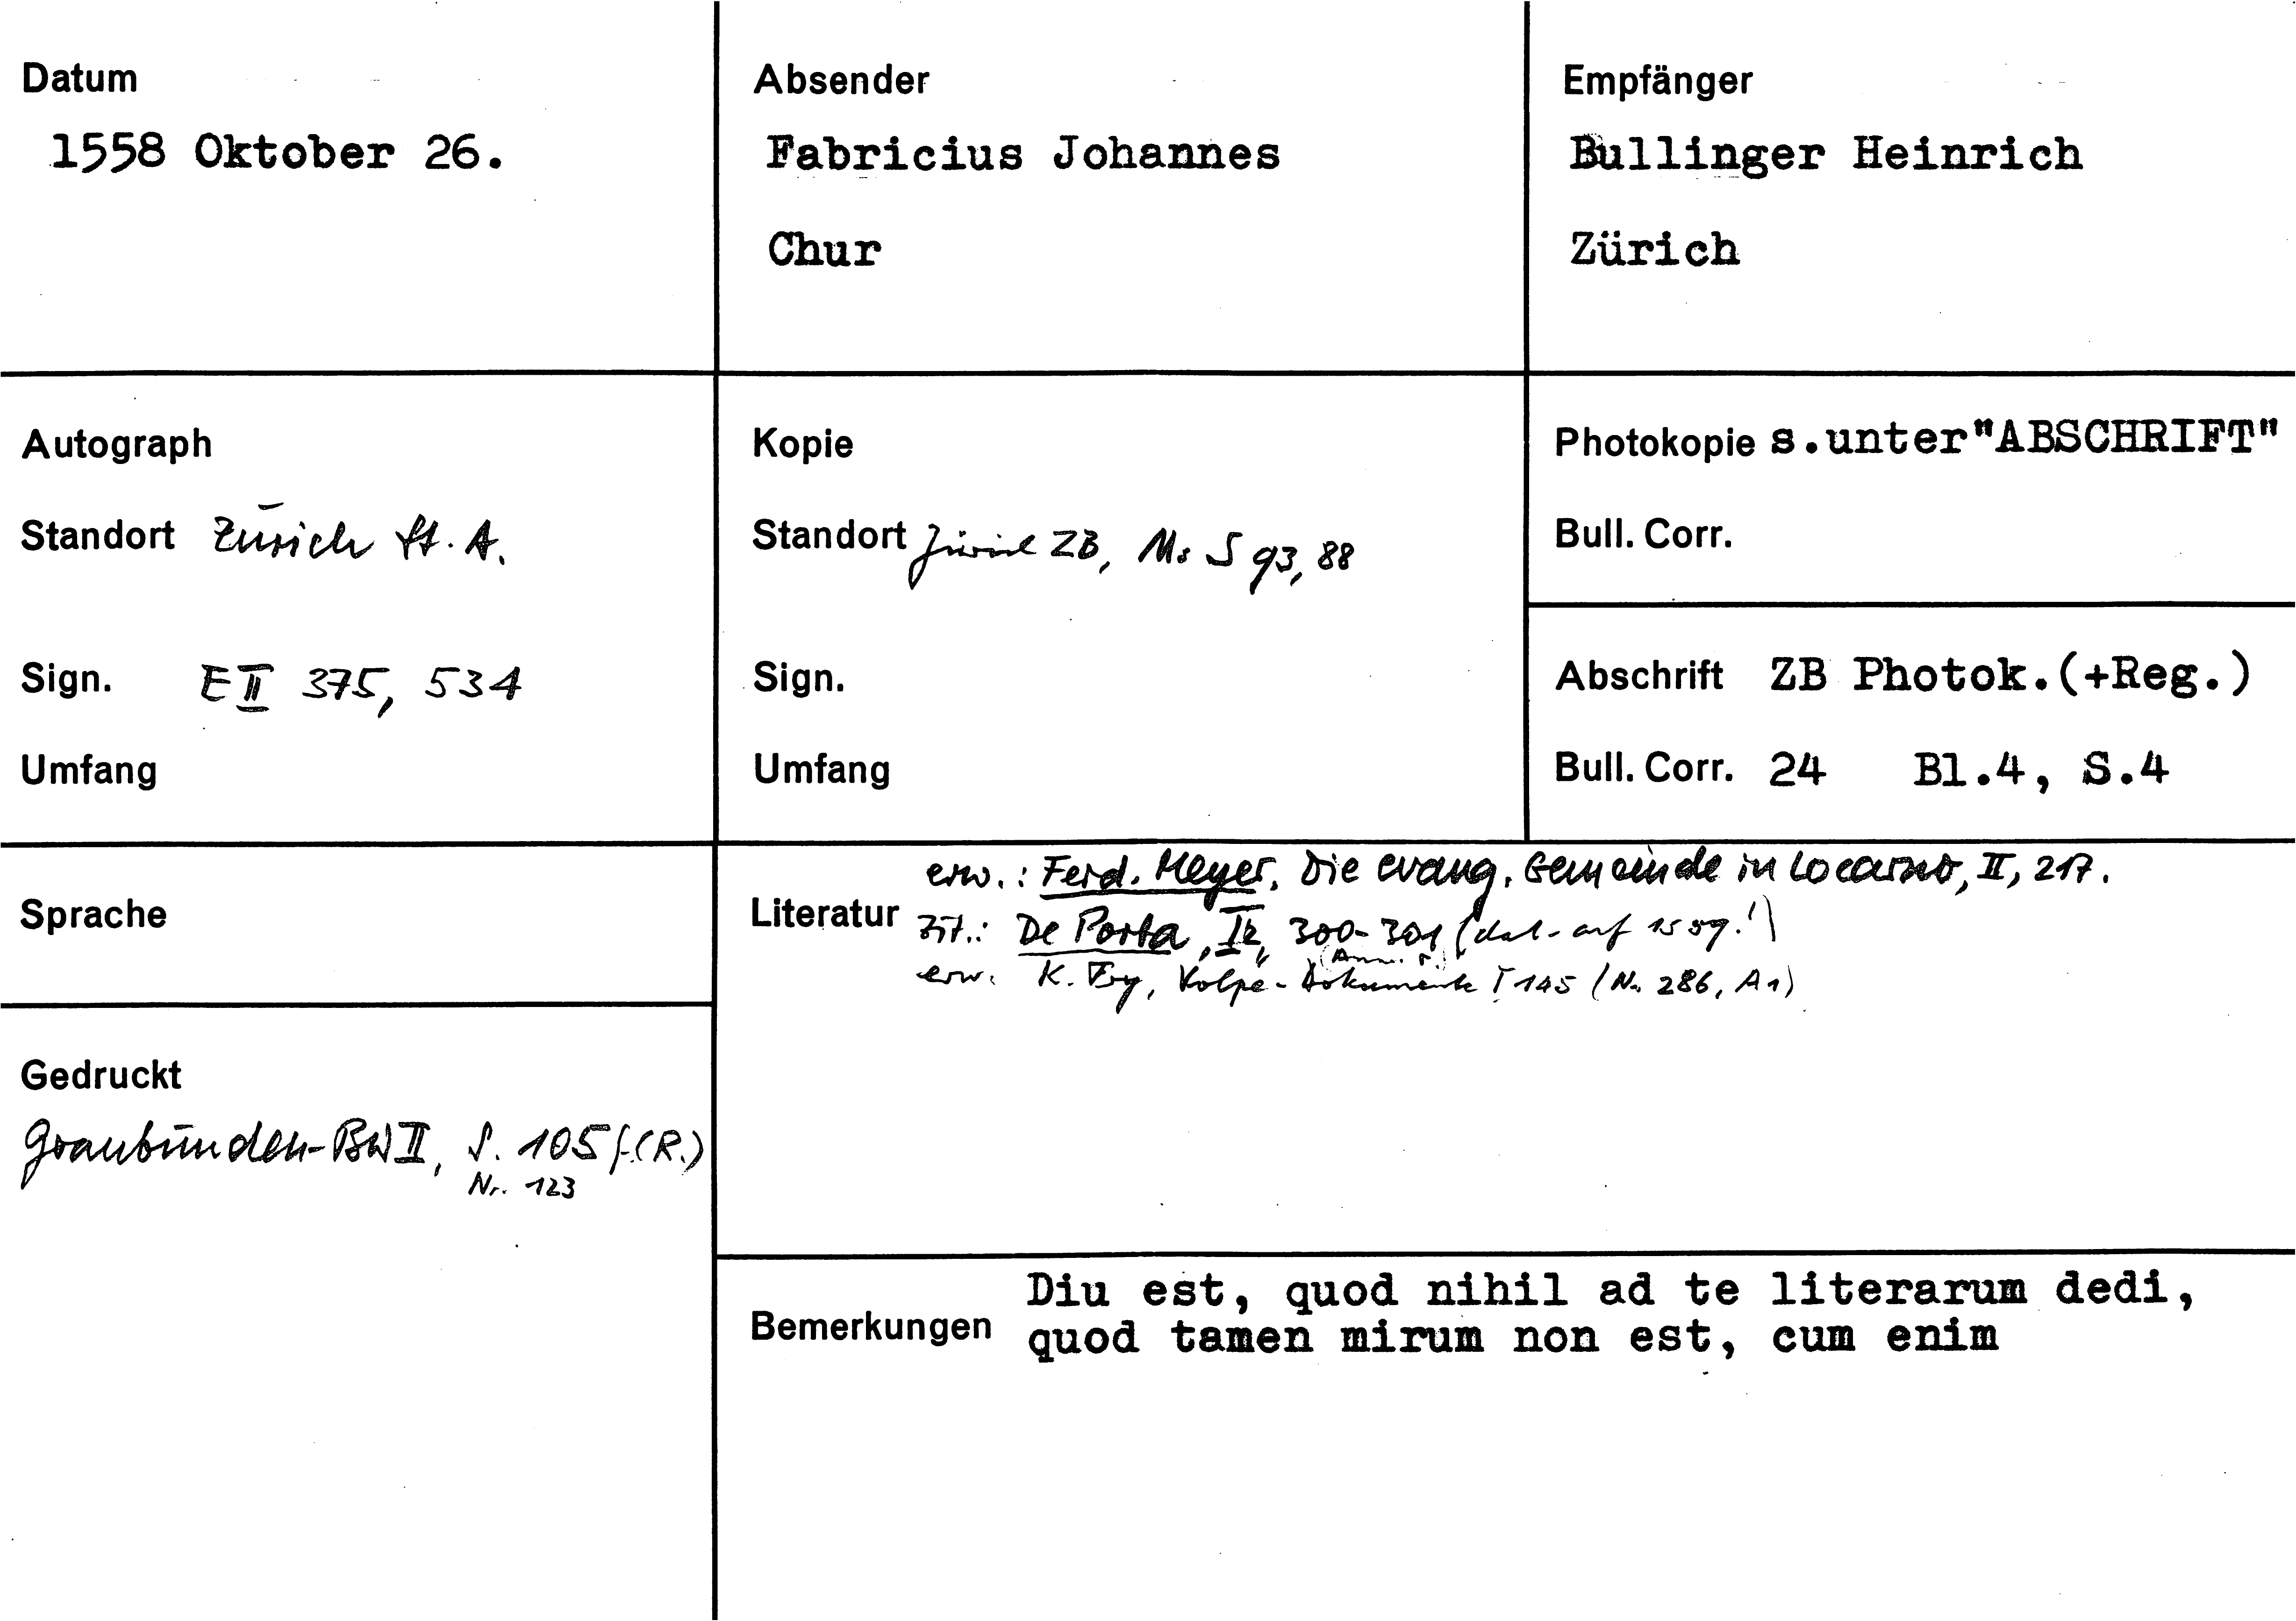 Datum
1558 Oktober 26.
Absender
Fabricius Johannes
Chur
Empfänger
Bullinger Heinrich
Zürich
Autograph
Standort Zürich St. A.
Sign. E II 375, 534
Umfang
Kopie
Standort Zürich ZB, Ms S 93, 88
Sign.
Umfang
Photokopie s.unter"ABSCHRIFT"
Bull. Corr.
Abschrift ZB Photok.(+Reg.)
Bull. Corr. 24 Bl.4, S.4
Sprache
Gedruckt
Graubünden-BW II, S. 105 f. (R.)
Nr. 123
Literatur
erw.: Ferd. Meyer, Die evang. Gemeinde in Locarno, II, 217.
zit.: De Porta, 300-301 (dat. auf 1559!)
(Anm. r.)
erw. K. Fry, Volpe-Dokumente I 145 (Nr. 286, A1)
Bemerkungen
Diu est, quod nihil ad te literarum dedi,
quod tamen mirum non est, cum enim